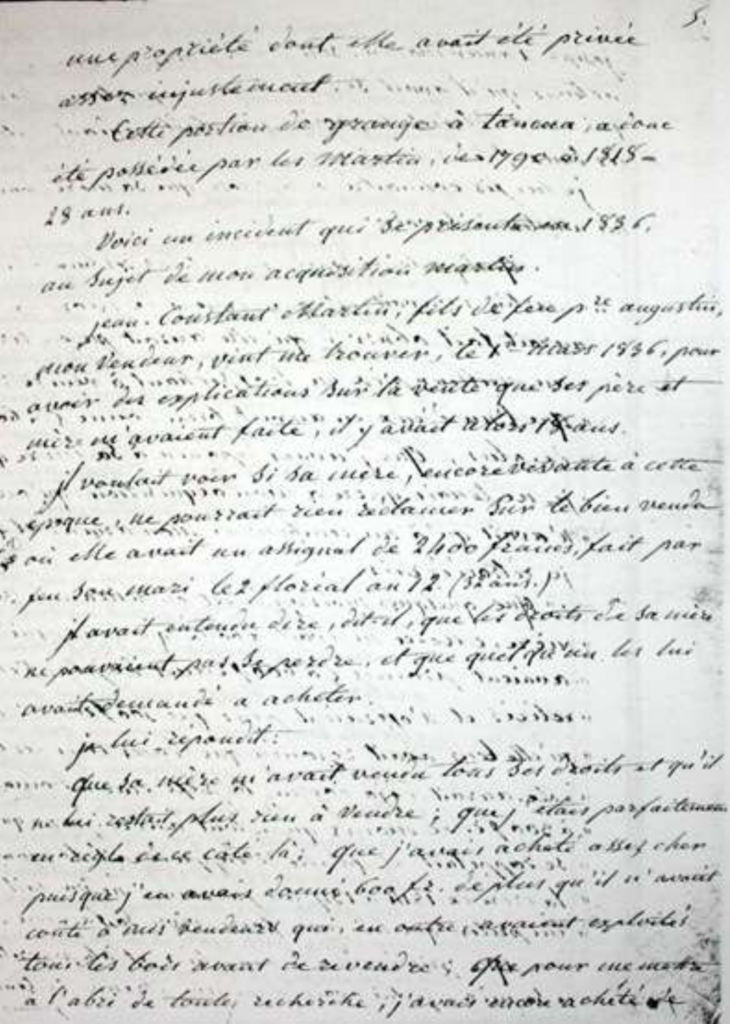 5.
une propriété dont elle avait été privée
assez injustement.
Cette portion de grange à tanoua, a donc
été possédée par les Martin, de 1790 à 1818 -
28 ans.
Voici un incident qui se présenta en 1836,
au sujet de mon acquisition martin.
jean-Constant Martin, fils de feu pre augustin,
mon vendeur, vint me trouver, le mars 1836, pour
avoir des explications sur la vente que ses père et
mère m'avaient faite, il y avait alors 18 ans.
il voulait voir si sa mère, encore vivante à cette
époque, ne pourrait rien réclamer sur le bien vendu
où elle avait un assignat de 2400 francs, fait par
feu son mari le 2 floréal an 12. (32 ans.)
il avait entendu dire, dit-il, que les droits de sa mère
ne pouvaient pas se perdre, et que quelqu'un les lui
avait demandé à acheter.
je lui répondit:
que sa mère m'avait vendu tous ses droits et qu'il
ne lui restait plus rien à vendre; que j'étais parfaitement
en règle de ce côté là; que j'avais acheté assez cher
puisque j'en avais donné 600 fr. de plus qu'il n'avait
couté à mes vendeurs qui, en outre, avaient exploités
tous les bois avant de revendre; que pour me mettre
à l'abri de toutes recherche, j'avais encore acheté de